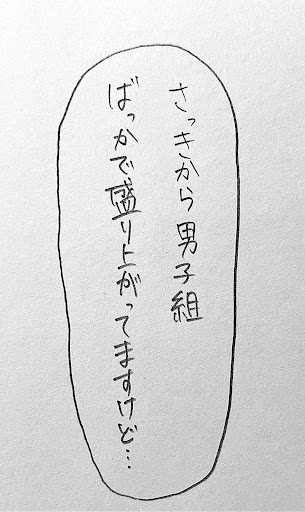 さっきから男子組
ばっかで盛り上がってますけど…